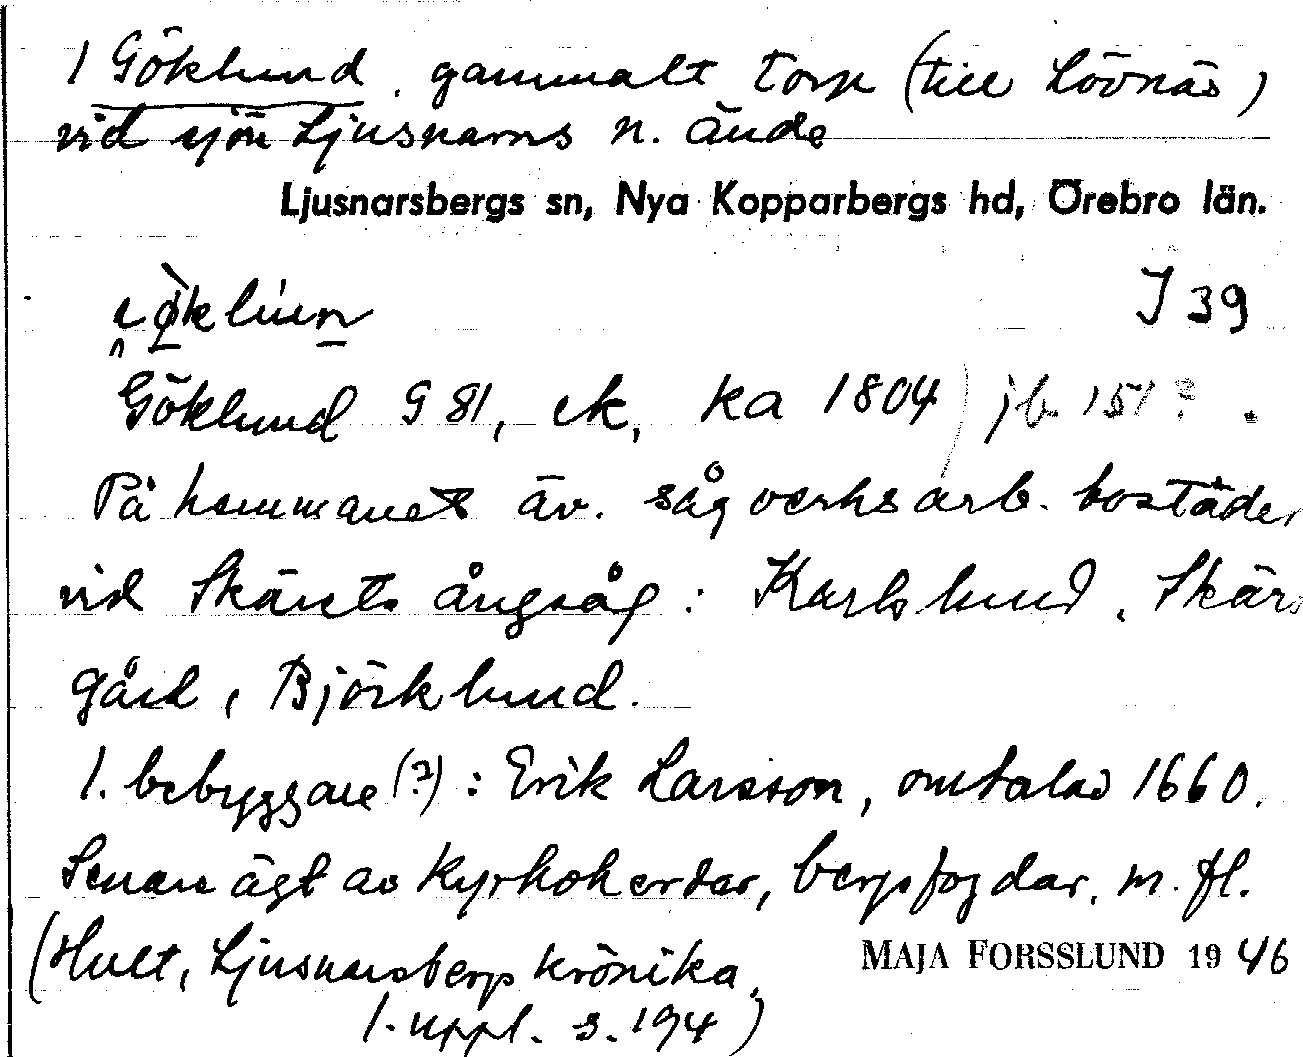 1 Göklund, gammalt torp (till Lövnäs)
vid sjön Ljusnarns n. ände
Ljusnarsbergs sn, Nya Kopparbergs hd, Örebro län.
J 39
Göklund G 81, ek, ka 1804) jb 151?
På hemmanet äv. sågverksarb. bostäder
vid Skäret ångsåg: Karlslund, Skärs
gård, Björklund.
1. bebyggare (?): Erik Larsson, omtalad 1660.
Senare ägt av kyrkoherdar, bergsfogdar, m. fl.
(Hult, Ljusnarsbergs krönika,
1. uppl. s. 194)
MAJA FORSSLUND 1946